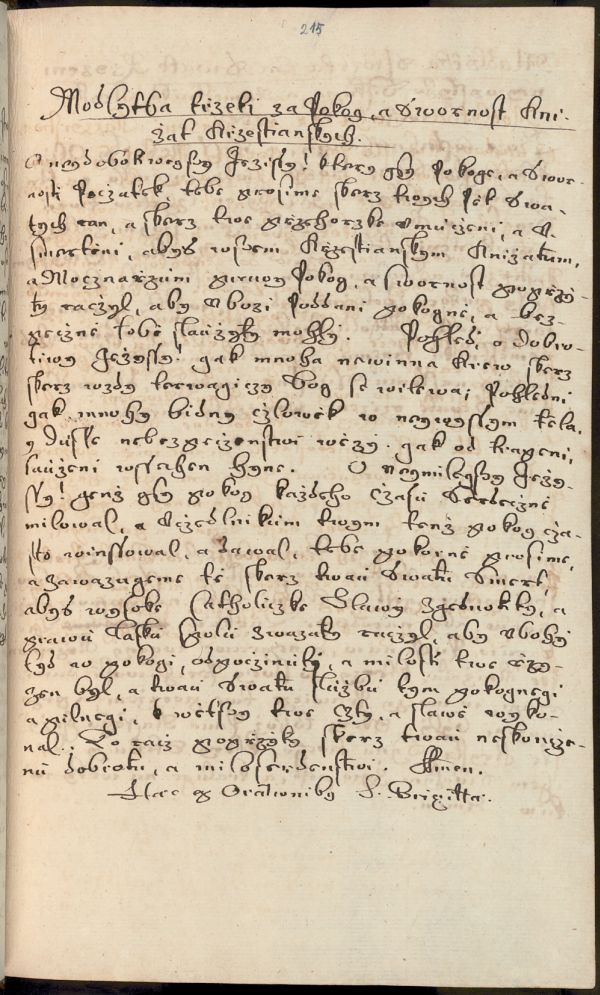 215
Modlytba trzeti za Pokog, a Swornost Kni-
žat Krzestianskych.
O neydobotiwegssy Jezissy! ktery gsy Pokoge, a Swor-
nosti Poczatek, tebe prosime skerz twych Pět Swa-
tych ran, a skerz twe przehorzke Vmuczeni, a V-
smrtčni, abys wssem Krzestianskym Knižatum,
a Mocznarzum prawy Pokog, a swornost poprzi-
ti raczyl, aby Vbozi Poddani pokogně, a bez-
pečzně tobě slaužyti mohly. Pohled, o dobro-
tiwy Jezyssy! gak mnoha newinna Krew skerz
skerz wzdy trwagiczy Bog se wilewa; Pohledni
gak mnohy bidny czlowek w neywyssym tela,
y Dusse nebezpeczenstwi wězy. gak od trapeni,
sauzeni wssechen hyne. O neymilegssy Jezy-
ssy! genž gsy pokog každeho Czasu Srdeczně
milowal, a Vczedlnikům twym tenž pokog cza-
sto winssowal, a dawal, tebe pokorně prosime,
a zawazugeme tě skerz twau Swatu Smert,
abys wysoke Catholiczke Hlawy zgednotky, a
prawu Lasku spolu zwazaty raczyl, aby Vbohy
lyd w pokogi, odpoczinuty, a milosti twe
zen byl, a twau Swatu službu tym pokogněgi
a pilnegi, k wětssy twe Czty, a slawě wyko-
nal. To racz poprzyty skerz twau neskoncze-
nu dobrotu, a miloserdenstwi. Amen.
Haec ex Orationibus S. Brigittae.